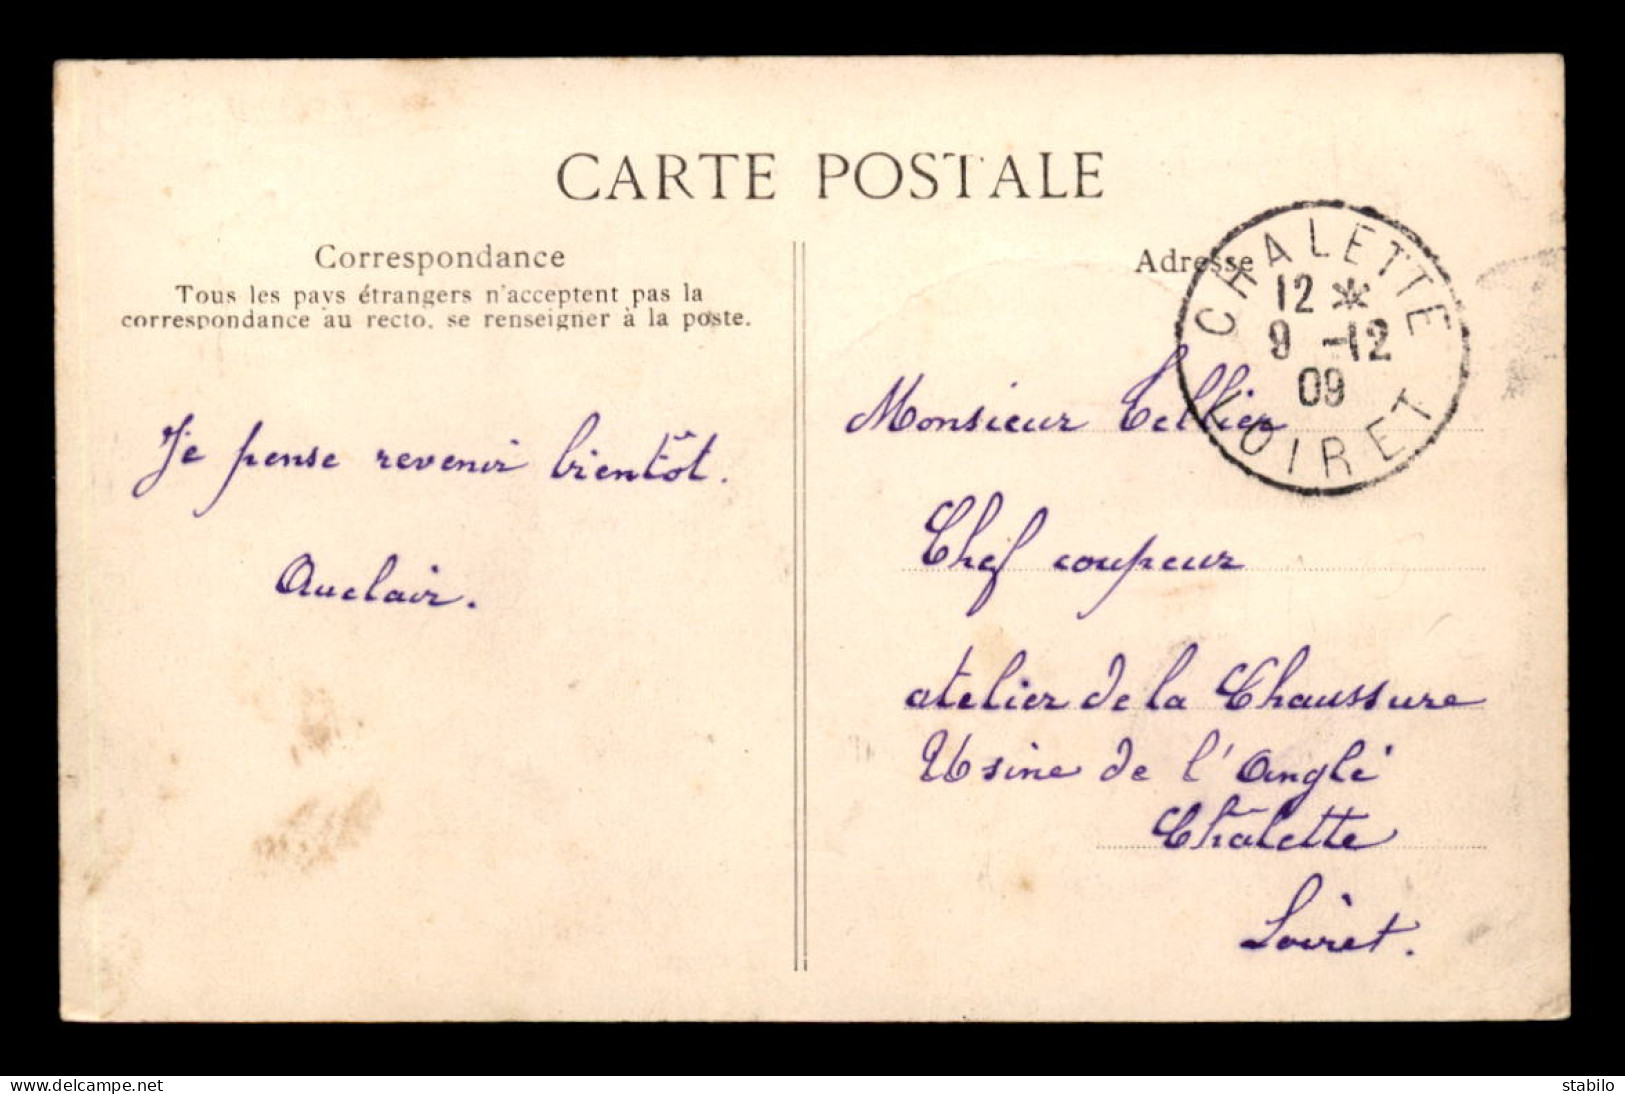 CARTE POSTALE
Correspondance
Tous les pays étrangers n'acceptent pas la
correspondance au recto, se renseigner à la poste.
Je pense revenir bientôt.
Auclair.
Adresse
CHALETTE
12 *
9 -12
09
LOIRET
Monsieur Tellier
Chef coupeur
atelier de la Chaussure
Usine de l'Anglé
Châlette
Loiret.
delcampe.net
stabilo